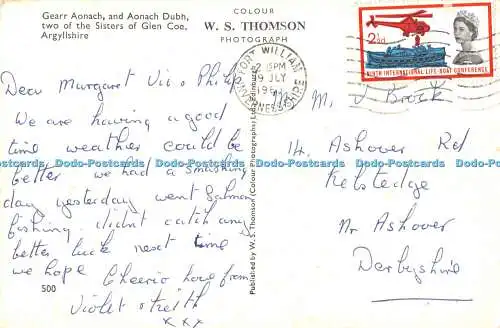 Gearr Aonach, and Aonach Dubh,
two of the Sisters of Glen Coe,
Argyllshire
COLOUR
W. S. THOMSON
PHOTOGRAPH
FORT WILLIAM
2 15PM
9 JLY
INVERNESS-SHIRE
2½d
NINTH INTERNATIONAL LIFE-BOAT CONFERENCE
Dear Margaret Vic & Philip
We are having a good
time weather could be
better we had a smashing
day yesterday went Salmon
fishing. didnt catch any
better luck next time
we hope Cheerio love from
Violet & Keith
x x x
500
Published by W. S. Thomson (Colour Photographs) Ltd., Edinburgh
M. J Brock
14. Ashover Rd
Kelstedge
Nr Ashover
Derbyshire
Dodo-Postcards Dodo-Postcards Dodo-Postcards Dodo-Postcards Dodo-Postcards Dodo-Postcards